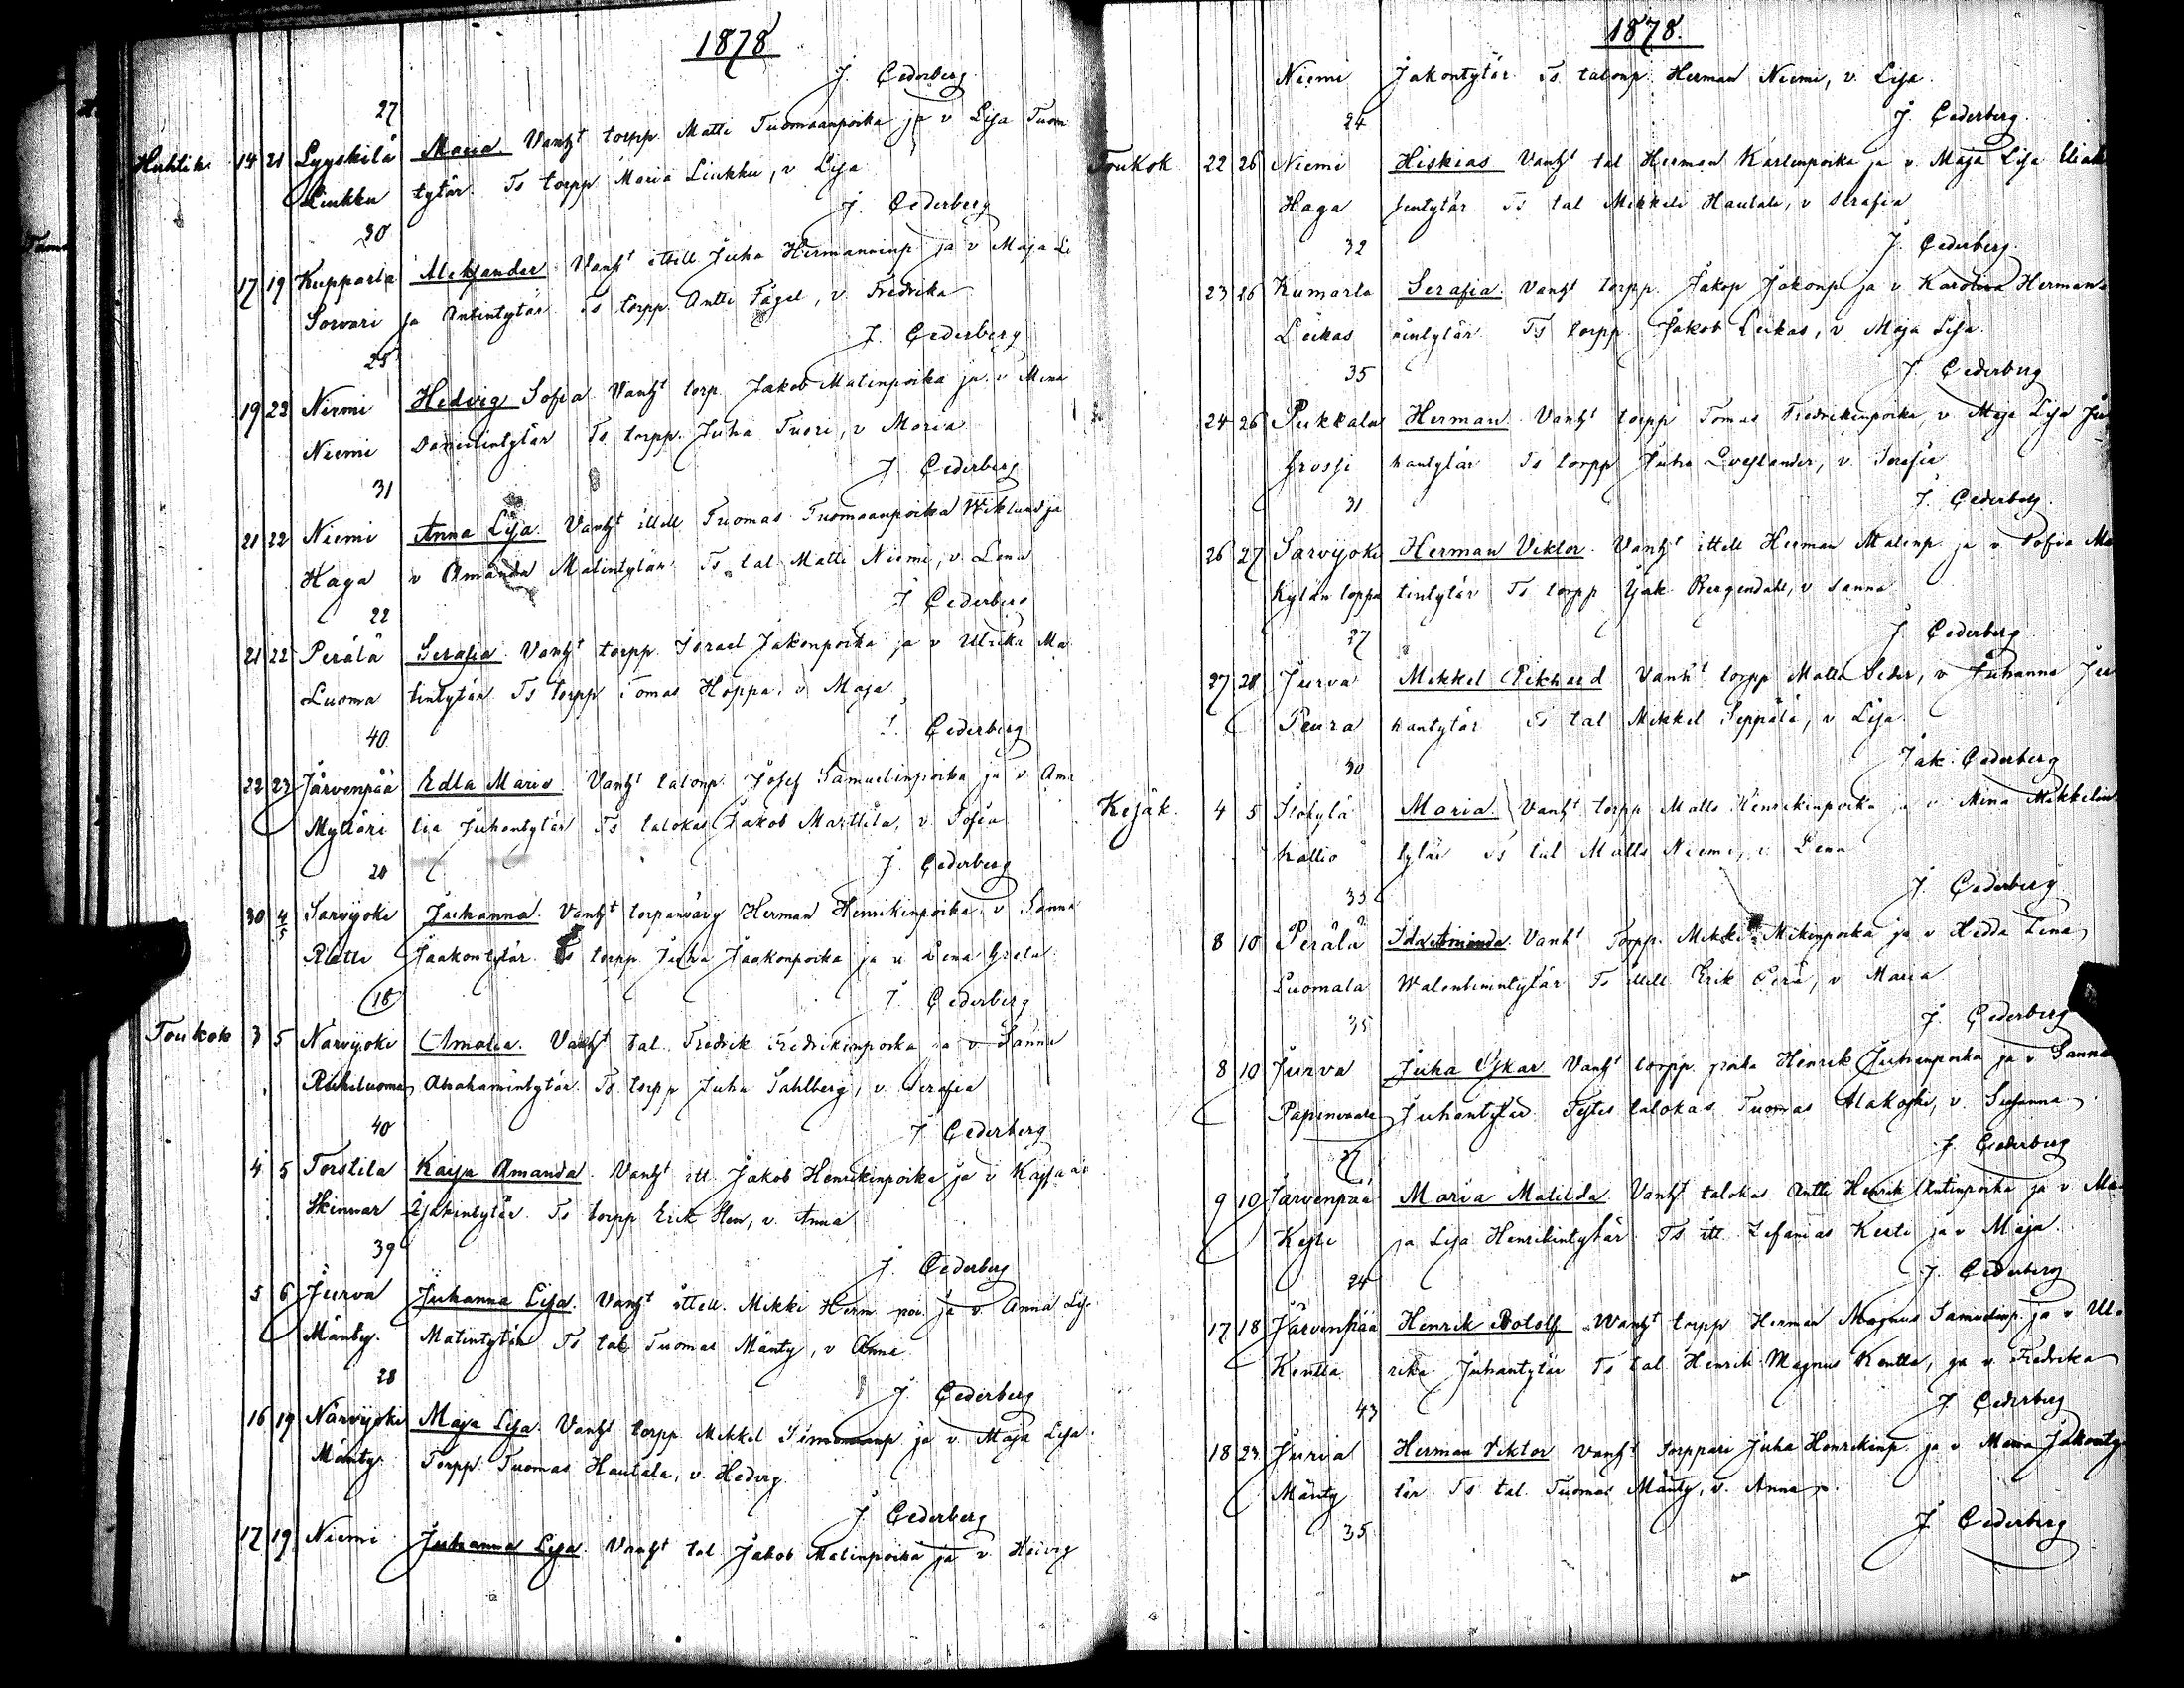 1878
J. Cederberg
27
Huhtik. 14 21 Lyyskilä Maria. Vanh:t torpp. Matti Tuomaanpoika ja v Lisa Tuom
Liukku tytär. Ts torpp Maria Liukku, v Lisa
J. Cederberg
30
17 19 Kupparla Aleksander Vanh:t ittell Juha Hermanninp ja v Maja Li
Sorvari ja Antintytär Ts torpp. Antti Fågel, v. Fredrika
J. Cederberg
25
19 23 Niemi Hedvig Sofia Vanh:t torp. Jakob Matinpoika ja v Mina
Niemi Danielintytär Ts torpp. Juha Tuori, v Maria
J Cederberg
31
21 22 Niemi Anna Lisa. Vanh:t ittell Tuomas Tuomaanpoika Wiklund ja
Haga v Amanda Matintytär Ts tal Matti Niemi, v. Lena
J Cederberg
22
21 22 Perälä Serafia. Vanh:t torpp. Israel Jakonpoika ja v Ulrika Ma
Luoma tintytär Ts torpp Tomas Hoppa, v. Maja
J. Cederberg
40
22 23 Järvenpää Edla Maria Vanh:t talonp. Josef Samuelinpoika ja v Ama
Mylläri lia Juhantytär Ts talokas Jakob Marttila, v Sofia
J. Cederberg
20
30 4/5 Sarvijoki Juhanna. Vanh:t torpanväry Herman Henrikinpoika v Sanna
Ratti Jaakontytär. Ts torpp Juha Jaakonpoika ja v Lena Greta
18 J Cederberg
Toukok 3 5 Närvijoki Amalia. Vanh:t tal. Fredrik Fredrikinpoika ja v Sanna
Rukiluoma Abrahamintytär. Ts torpp Juha Sahlberg, v Serafia
40 J Cederberg
4 5 Torstila Kaisa Amanda. Vanh:t itt. Jakob Henrikinpoika ja v Kaisa
Skinnar Isakintytär. Ts torpp Erik Hen, v. Anna
39 J. Cederberg
5 6 Jurva Juhanna Lisa. Vanh:t ittell. Mikki Herm poi. ja v Anna Lis
Mänty. Matintytär Ts tal Tuomas Mänty, v Anna
28 J. Cederberg
16 19 Närvijoki Maja Lisa. Vanh:t torpp Mikkel Simonanp ja v Maja Lisa.
Mänty Torpp. Tuomas Hautala, v. Hedvig
J Cederberg
17 19 Niemi Juhanna Lisa. Vanh:t tal Jakob Matinpoika ja v Heivig
1878.
Niemi Jakontytär. Ts. talonp. Herman Niemi, v. Lisa.
24 J. Cederberg.
Toukok 22 26 Niemi Hiskias Vanh:t tal Herman Karlinpoika ja v. Maja Lisa
Haga sintytär Ts tal Mikkeli Hautala, v Serafia
32 J. Cederberg.
23 26 Kumarla Serafia. Vanh:t torpp. Jakop Jakonp ja v Karolina Herman
Leikas nintytär Ts torpp. Jakob Leikas, v Maja Lisa.
35 J. Cederberg
24 26 Pukkala Herman Vanh:t torpp Tomas Fredrikinpoika, v Maja Lisa Ju
Grossi hantytär Ts torpp Juha Lveslander, v. Serafia
31 J. Cederberg.
26 27 Sarvijoki Herman Viktor. Vanh:t ittell Herman Matinp. ja v. Sofia Ma
Kylän loppa tintytär Ts torpp Isak Bergendahl, v Sanna
27 J Cederberg
27 28 Jurva Mikkel Rikhard Vanh:t torpp Matts Seder, v Juhanna Ju
Peura hantytär Ts tal Mikkel Seppälä, v Lisa.
30 Jak. Cederberg
Kesäk. 4 5 Ilokylä Maria. Vanh:t torpp Matts Henrikinpoika ja v Mina Mikkelin
Kallio tytär Ts tal Matts Niemi, v. Lena
33 J. Cederberg
8 10 Perälä Ida Amanda. Vanh:t Torpp. Mikki Mikinpoika ja v Hedda Lena
Luomala Walentinintytär Ts ittell Erik Perä, v Maria
35 J. Cederberg
8 10 Jurva Juha Oskar Vanh:t torpp. poika Henrik Juhanpoika ja v Sanna
Papinvaara Juhantytär Testes talokas Tuomas Alakoski, v. Susanna
27 J. Cederberg
9 10 Järvenpää Maria Matilda Vanh:t talokas Antti Henrik Antinpoika ja v Ma
Kesti ja Lisa Henrikintytär Ts itt Zefanias Kesti ja v Maja
24 J. Cederberg
17 18 Järvenpää Henrik Rotolf Vanh:t torpp Herman Magnus Samulinp. ja v Ul.
Kentta rika Juhantytär Ts tal Henrik Magnus Kentta, ja v Fredrika
43 J Cederberg
18 23 Jurva Herman Viktor Vanh:t Torppari Juha Henrikinp. ja v Maria Jakonty
Mänty tär Ts tal Tuomas Mänty, v. Anna
35 J Cederberg